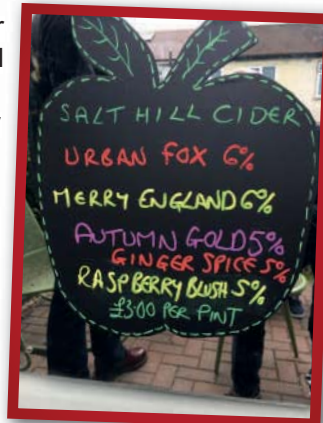 SALT HILL CIDER
URBAN FOX 6%
MERRY ENGLAND 6%
AUTUMN GOLD 5%
GINGER SPICE 5%
RASPBERRY BLUSH 5%
£3.00 PER PINT